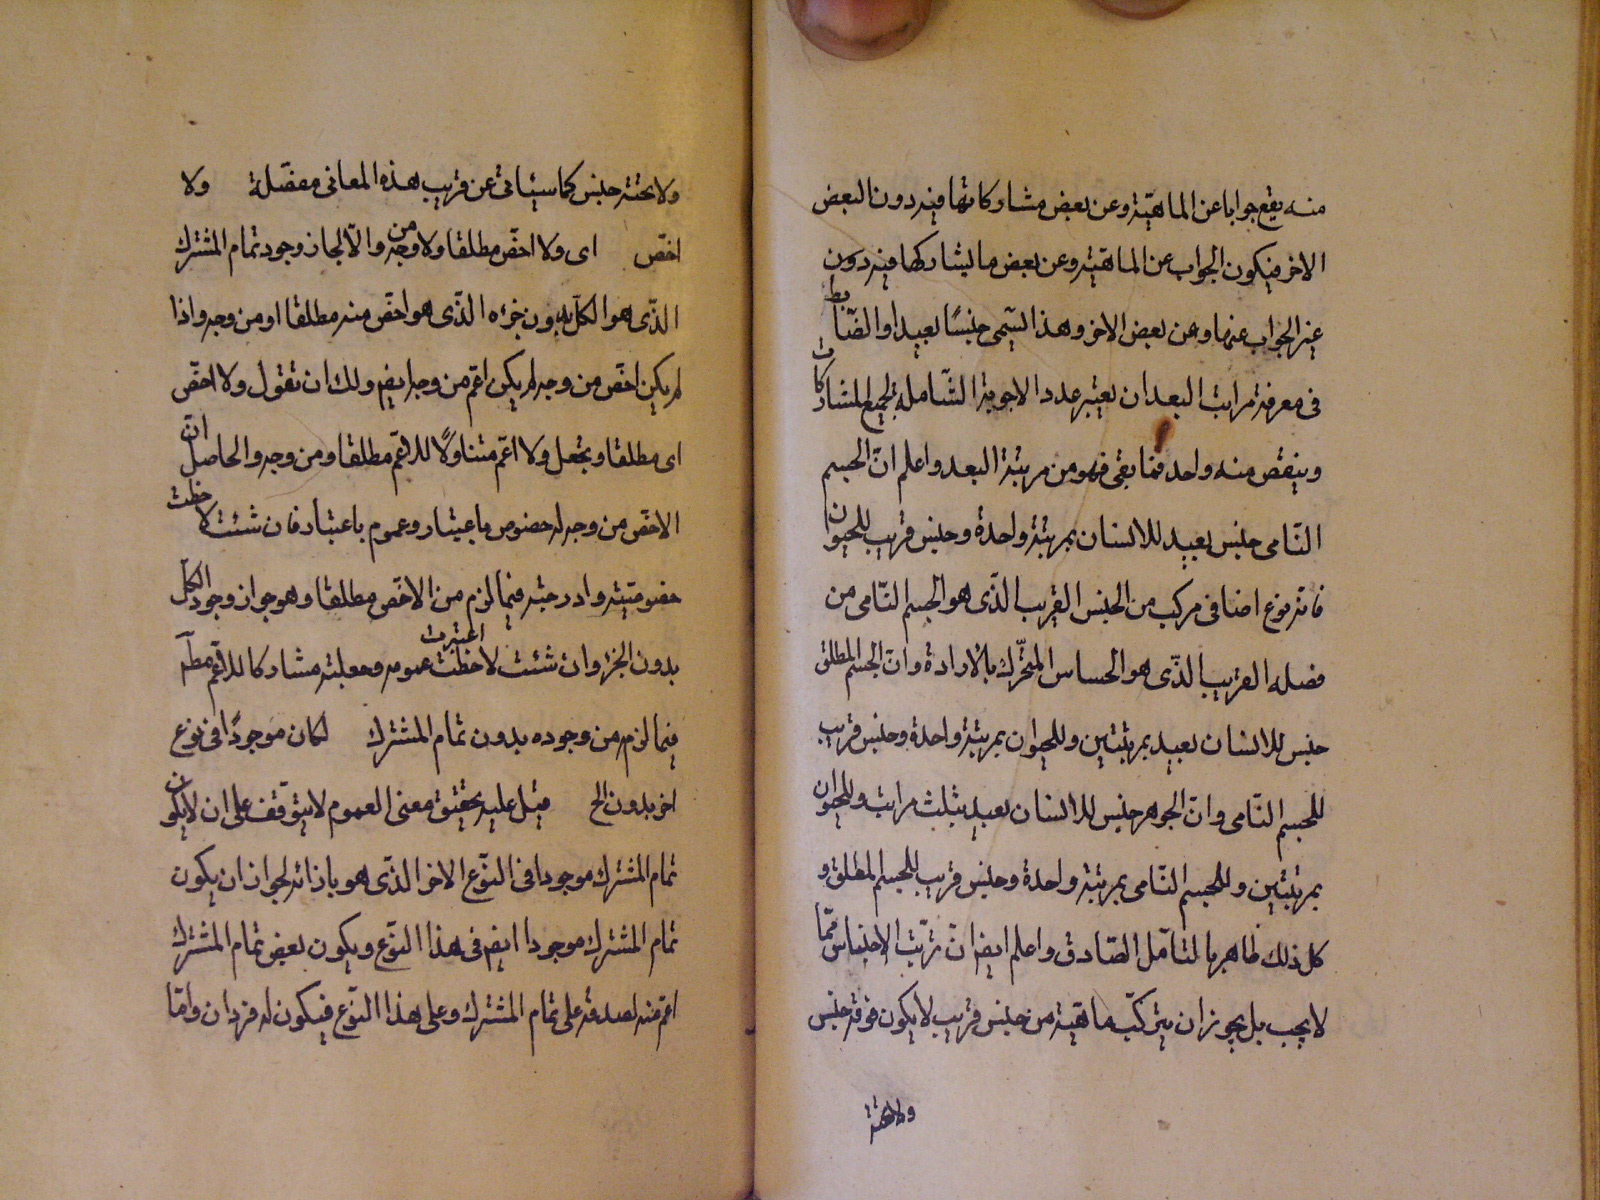 منه يقع جوابا عن الماهيّة وعن بعض مشاركاتها فيه دون البعض
الاخر فيكون الجواب عن الماهيّة وعن بعض ما يشاركها فيه دون
غير الجواب عنها وعن بعض الاخر وهذا يسمى جنسًا بعيدا والضّابط
فى معرفة مراتب البعد ان يعتبر عدد الاجوبة الشّاملة لجميع المشاركات
وينقص منه واحد فما بقى فهو من مرتبة البعد واعلم انّ الجسم
النّامى جنس بعيد للانسان بمرتبة واحدة وجنس قريب للحيوان
فانّه نوع اضافى مركب من الجنس القريب الذّى هو الجسم النّامى من
فصله القريب الذّى هو الحساس المتحّرك بالارادة وانّ الجسم المطلق
جنس للانسان بعيد بمرتبتين وللحيوان بمرتبة واحدة وجنس قريب
للجسم النّامى وانّ الجوهر جنس للانسان بعيد بثلث مراتب وللحيوان
بمرتبتين وللجسم النّامى بمرتبة واحدة وجنس قريب للجسم المطلق و
كل ذلك ظاهر بالتامّل الصّادق واعلم ايضا انّ ترتّب الاجناس ممّا
لا يجب بل يجوز ان يتركّب ماهيّة من جنس قريب لا يكون فوقه جنس
ولا تحته
ولا تحته جنس كما سيئاتى عن قريب هذه المعانى مفصّلة ولا
اخصّ اى ولا اخصّ مطلقا ولا من وجه والّا لجاز وجود تمام المشترك
الذّى هو الكلّ بدون جزءه الذّى هو اخصّ منه مطلقا او من وجه واذا
لم يكن اخصّ من وجه لم يكن اعّم من وجه ايضا ولك ان تقول ولا اخصّ
اى مطلقا وتجعل ولا اعّم متناولًا للاعّم مطلقا ومن وجه والحاصل انّ
الاخصّ من وجه له خصوص باعتبار وعموم باعتبار فان شئت لاحظت
خصوصيّته وادرجته فيما لزم من الاخصّ مطلقا وهو جواز وجود الكلّ
بدون الجزء وان شئت لاحظت اعتبرت عمومه وجعلته مشاركا للاعّم مطلقا
فيما لزم من وجوده بدون تمام المشترك لكان موجودًا فى نوع
اخر بدون الخ قيل عليه تحقيق معنى العموم لا يتوقّف على ان لا يكون
تمام المشترك موجودا فى النّوع الاخر الذّى هو بازائه لجواز ان يكون
تمام المشترك موجودا ايضا فى هذا النّوع ويكون بعض تمام المشترك
اعّم منه لصدقه على تمام المشترك وعلى هذا النّوع فيكون له فردان وامّا